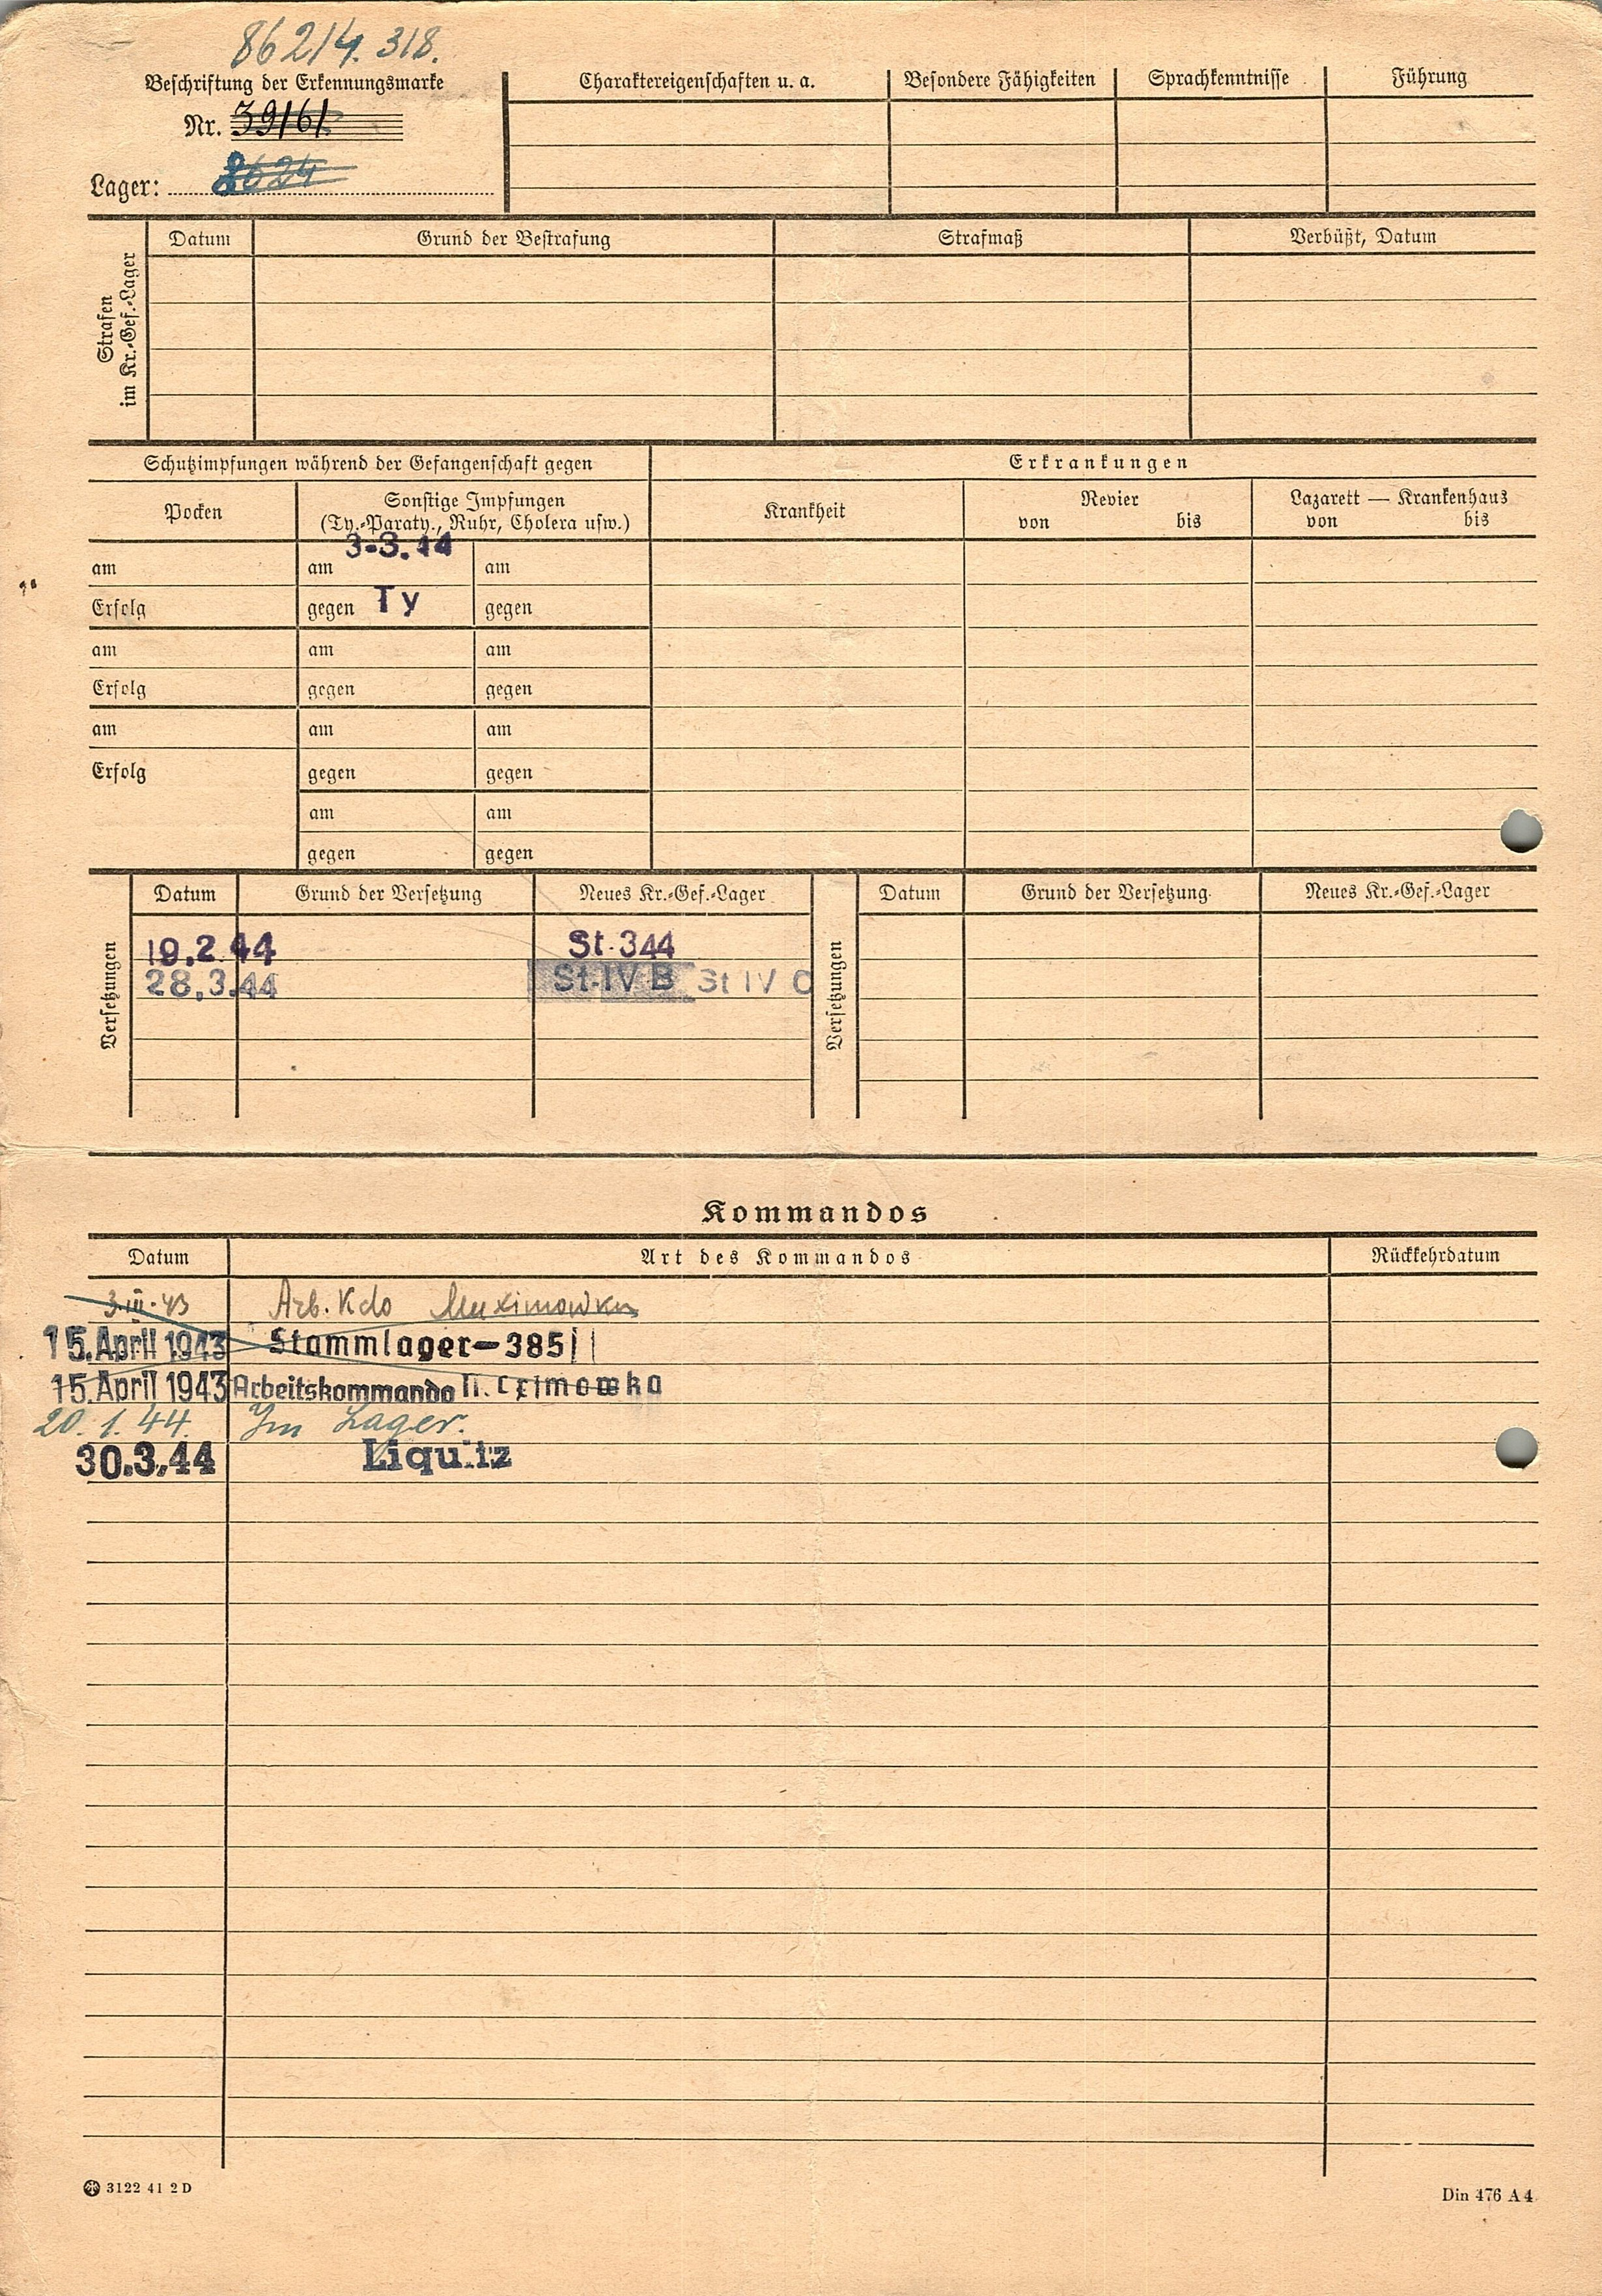 86214. 318.
Beschriftung der Erkennungsmarke
Nr. 39161
Lager: 8624
Charaktereigenschaften u. a. Besondere Fähigkeiten Sprachkenntnisse Führung
Strafen im Kr.-Gef.-Lager
Datum Grund der Bestrafung Strafmaß Verbüßt, Datum
Schutzimpfungen während der Gefangenschaft gegen Erkrankungen
Pocken Sonstige Impfungen Krankheit Revier Lazarett — Krankenhaus
(Ty.-Paraty., Ruhr, Cholera usw.) von bis von bis
am am 3-3.44 am
Erfolg gegen Ty gegen
am am am
Erfolg gegen gegen
am am am
Erfolg gegen gegen
am am
gegen gegen
Versetzungen Datum Grund der Versetzung Neues Kr.-Gef.-Lager Versetzungen Datum Grund der Versetzung Neues Kr.-Gef.-Lager
19.2.44 St. 344
28.3.44 St. IV B St IV C
Kommandos
Datum Art des Kommandos Rückkehrdatum
3.III.43 Arb. Kdo Maximowka
15. April 1943 Stammlager-385
15. April 1943 Arbeitskommando
20.1.44. Im Lager.
30.3.44 Liquitz
3122 41 2 D
Din 476 A 4